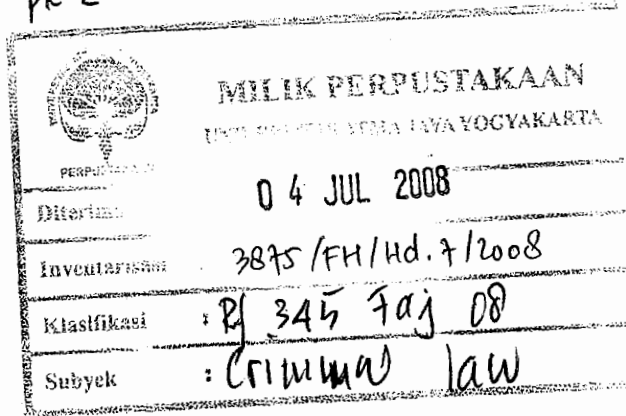 MILIK PERPUSTAKAAN
UNIVERSITAS ATMA JAYA YOGYAKARTA
Diterima 04 JUL 2008
Inventarisasi : 3875/FH/Hd.7/2008
Klasifikasi : Rf 345 Faj 08
Subyek : Criminal law